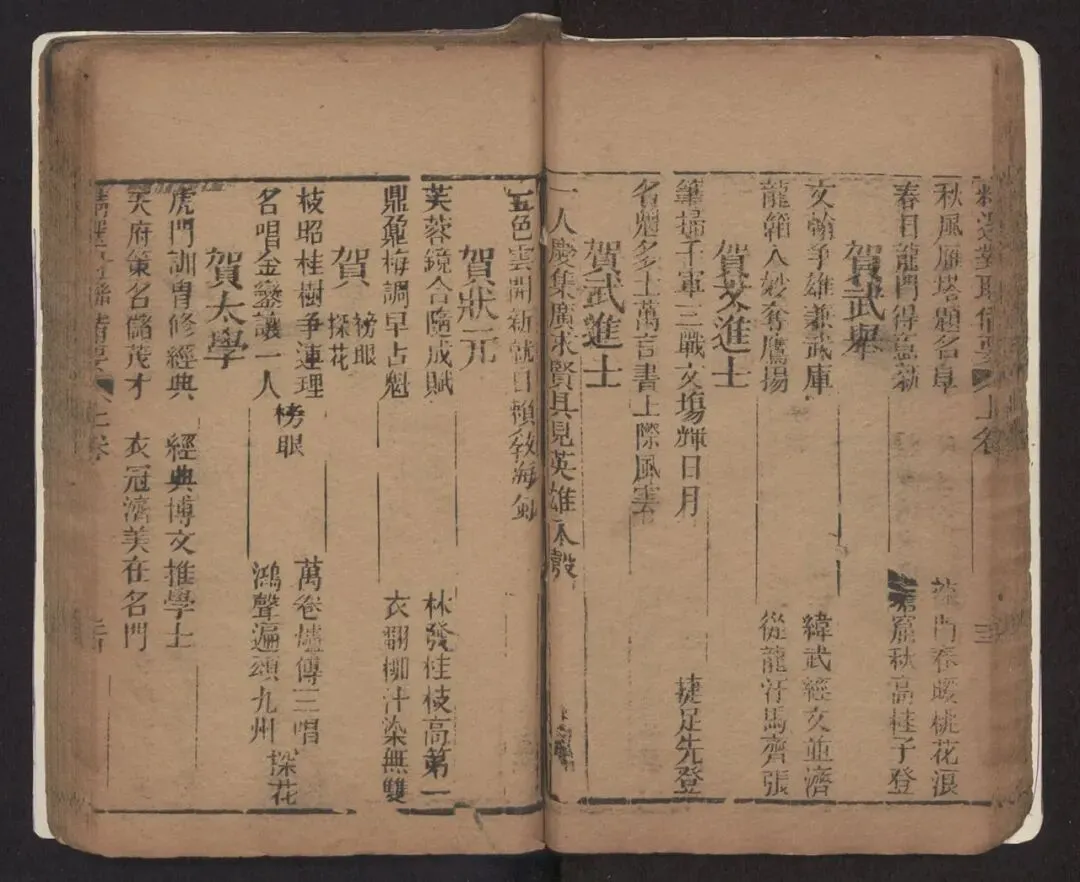 精選對聯備要 上卷
秋風雁塔題名早 龍門春暖桃花浪
春日龍門得意新 蟾窟秋高桂子登
賀武舉
文翰爭雄兼武庫 緯武經文並濟
龍韜入妙奪鷹揚 從龍汗馬齊張
賀文進士
筆掃千軍三戰文塲輝日月 捷足先登
名魁多士萬言書上際風雲
賀武進士
一人慶集廣求賢具見英雄入彀
五色雲開新就日賴敎海
賀狀元
芙蓉鏡合隨成賦 林發桂枝高第一
鼎鼐梅調早占魁 衣翻柳汁染無雙
賀榜眼探花
枝昭桂樹爭連理 萬卷爐傳三唱
名唱金鑾讓一人 榜眼 鴻聲遍頌九州 探花
賀太學
虎門訓冑修經典 經典博文推學士
天府策名儲茂才 衣冠濟美在名門
上卷